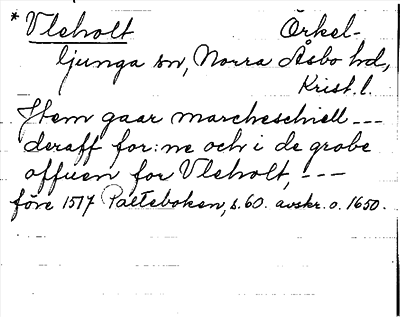 * Vleholt Örkel-
ljunga sn, Norra Åsbo hd,
Krist. l.
Jtem gaar marcheschiell ---
deraff for:ne och i de grobe
offuen for Vleholt, ---
före 1517 Palteboken, s. 60. avskr. o. 1650.